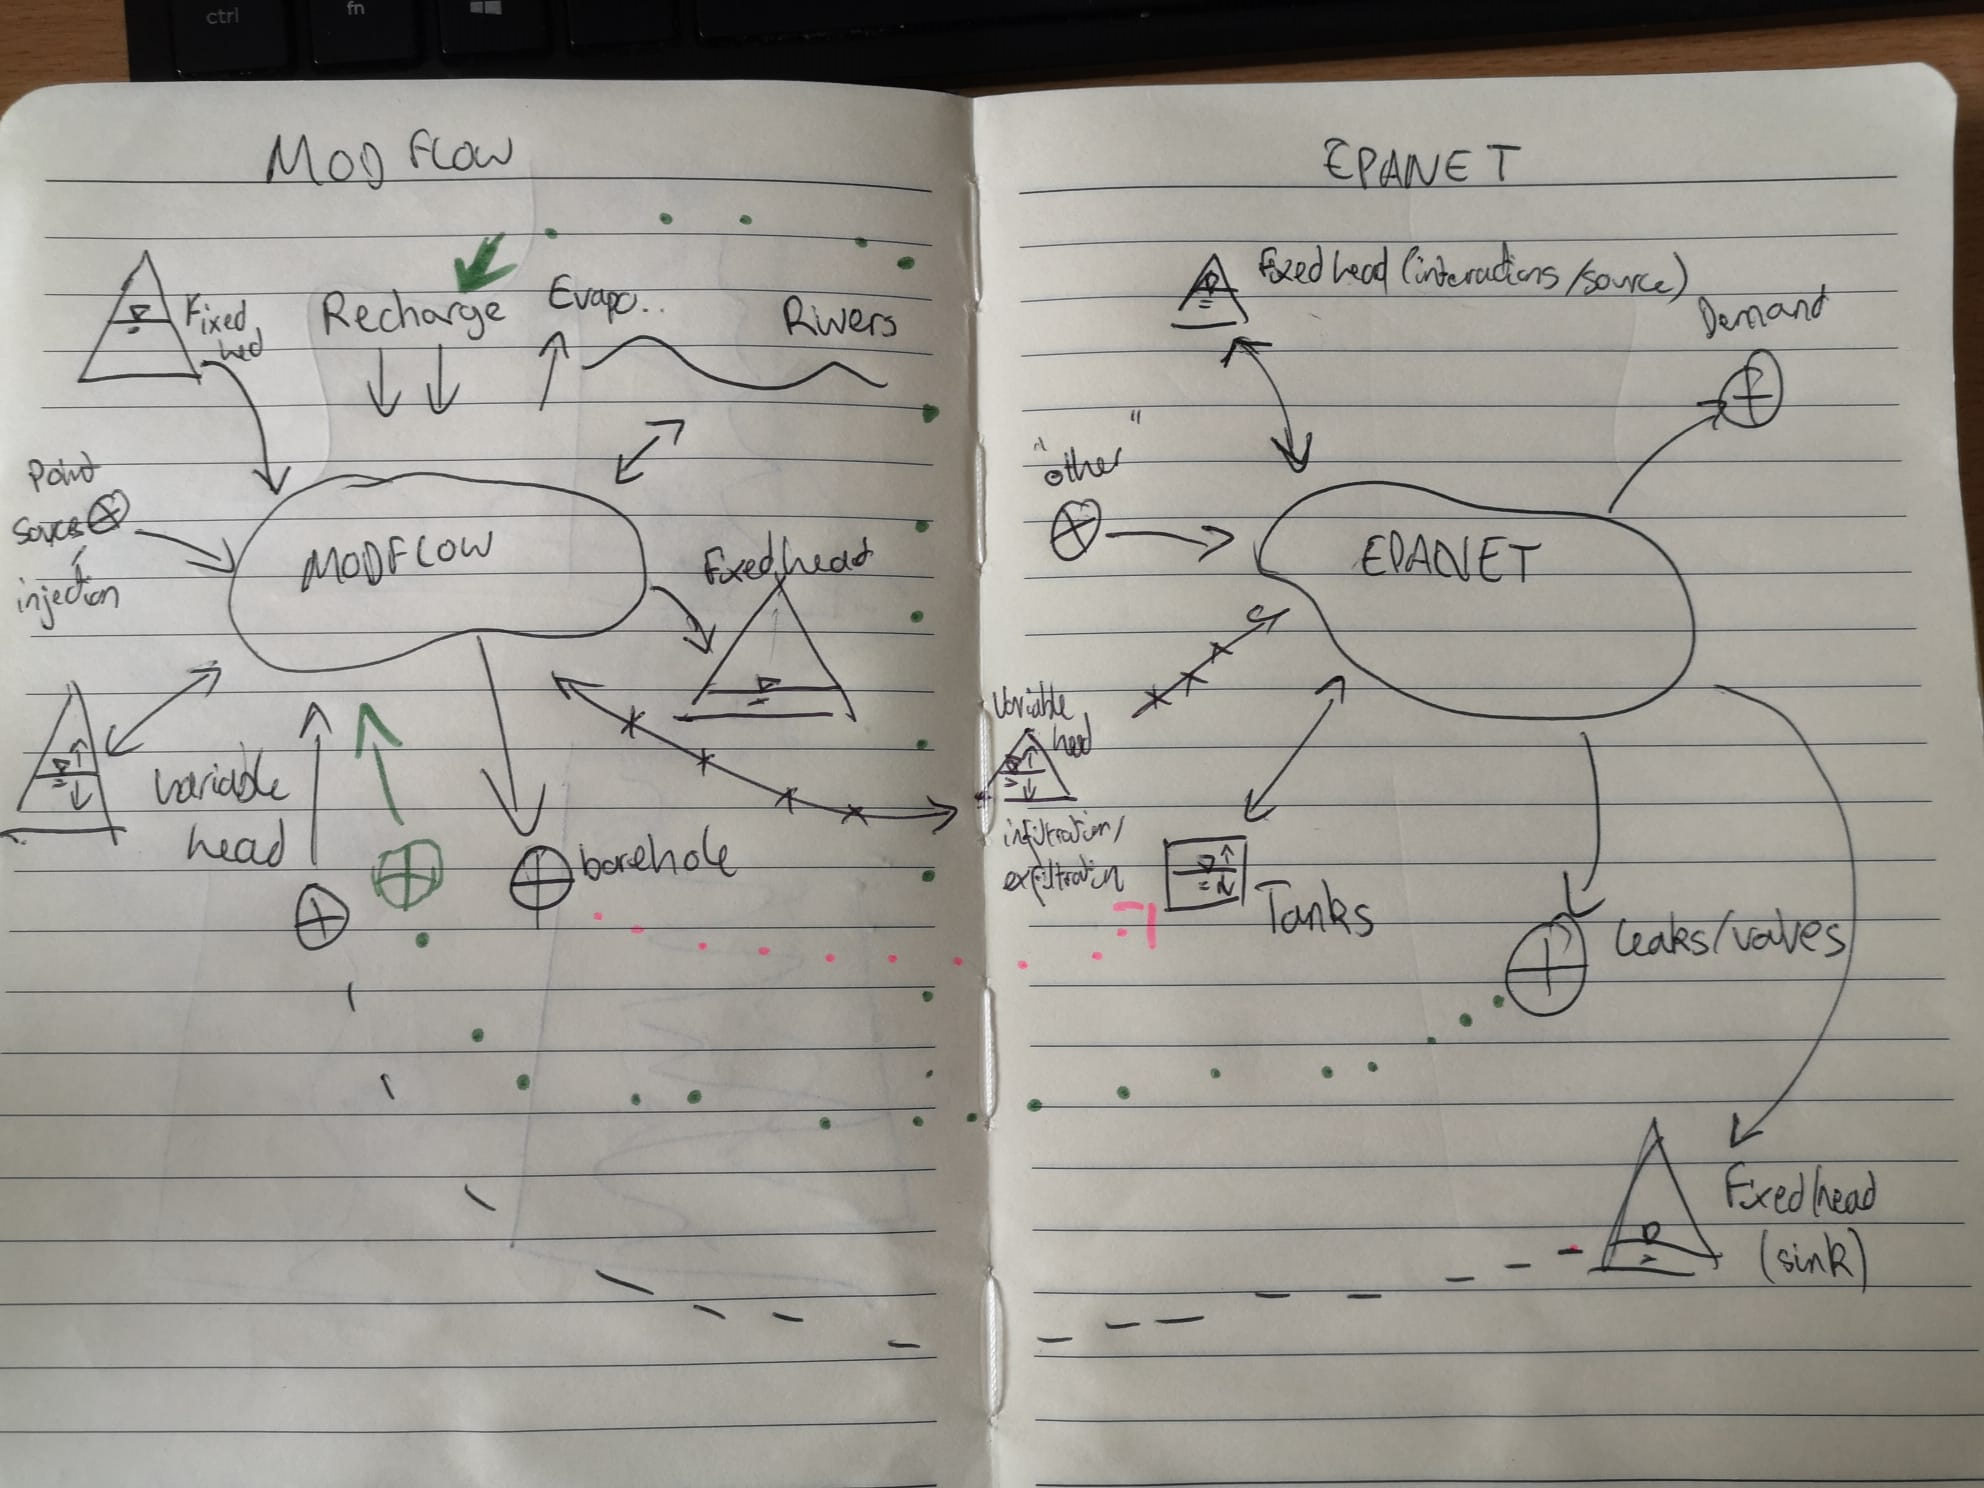 ctrl
fn
MODFLOW
Fixed
hed
Recharge
Evapo..
Rivers
Point
Souces
injection
MODFLOW
Fixed head
variable
head
borehole
EPANET
Fixed head (interactions/source)
Demand
"other"
EPANET
Variable
head
infiltration/
exfiltration
Tanks
Leaks/valves
Fixed head
(sink)